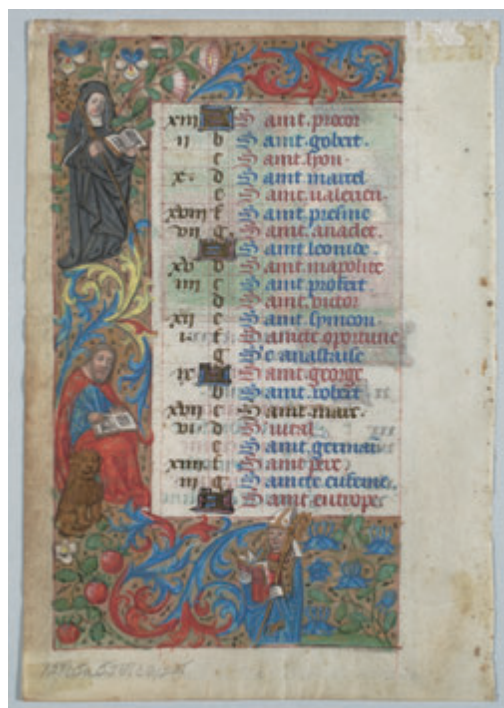 xiii Saint procor
ii b Saint gobert.
c Saint lyon.
x. d Saint marcel
e Saint valerien.
xviii f Saint presme
vii g. Saint anaclet.
Saint leonide.
xv b Saint mapolite
iiii c Saint probert
d Saint victor
xii e Saint symeon.
i. f Saincte oportune
g S'e anastaise
ix Saint george
b Saint robert
xvii c Saint marc.
vi d S vital
e Saint germain
xiiii f Saint pere
iii g Saincte eufeme.
Saint eutrope